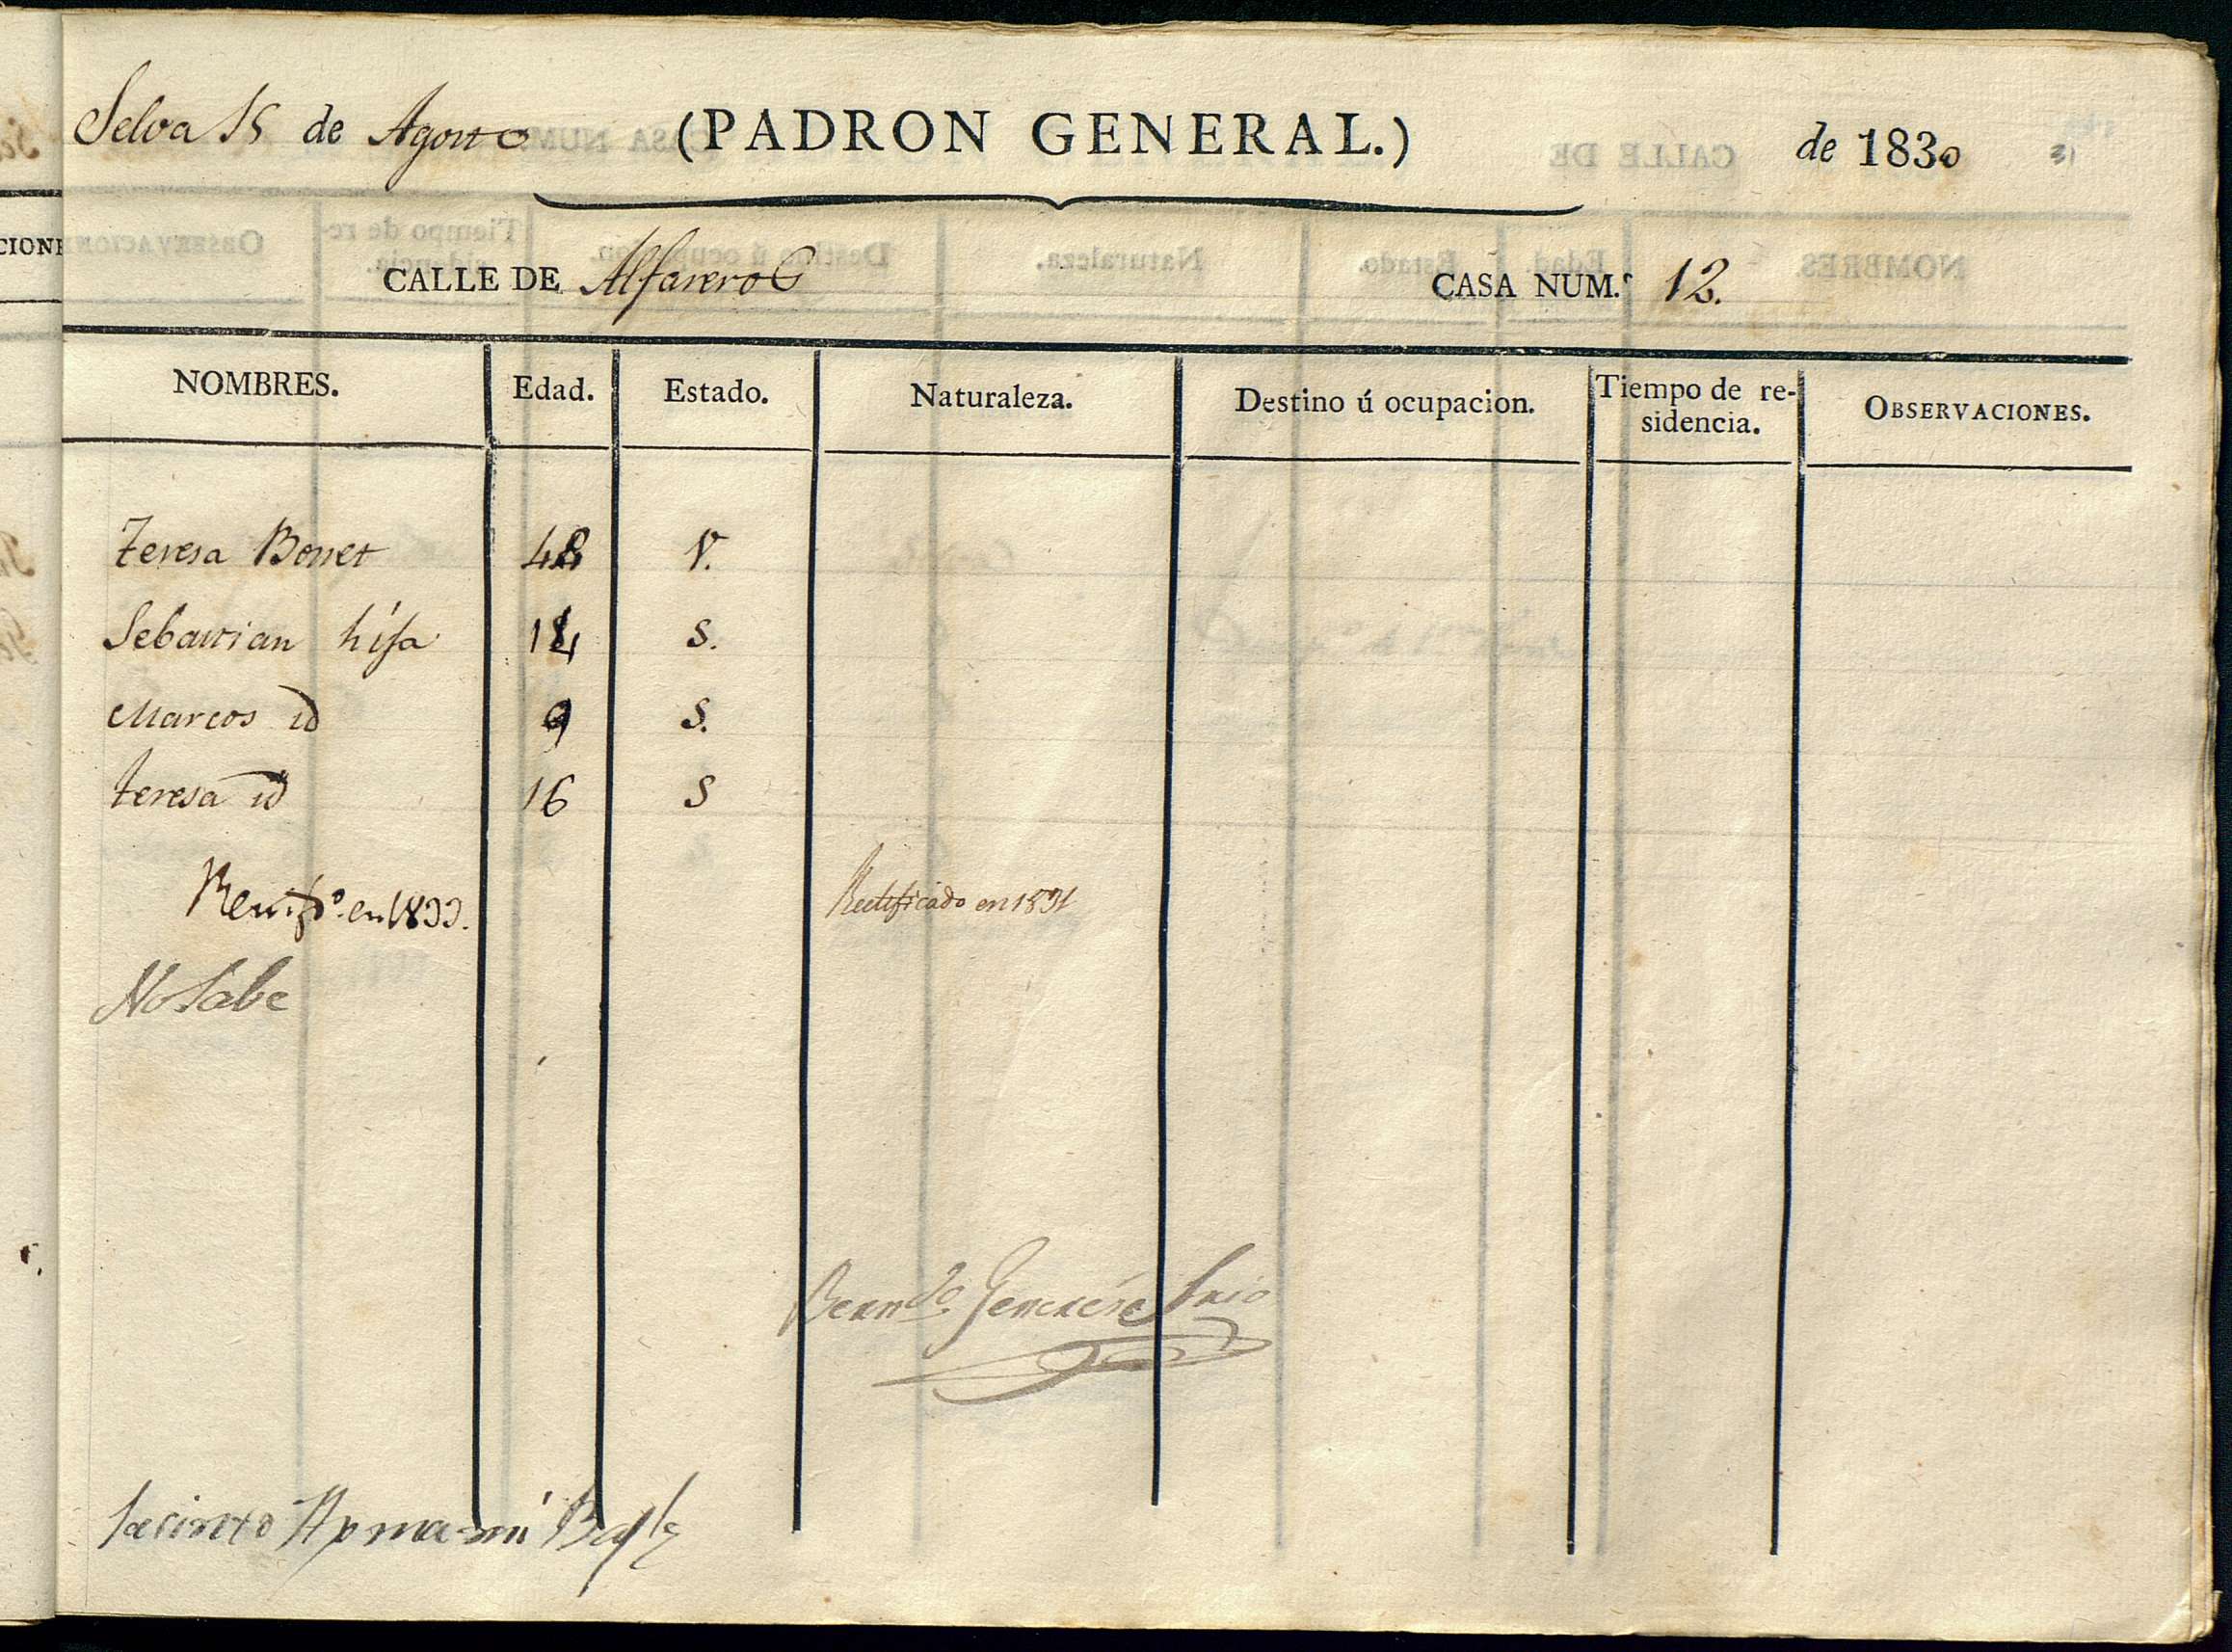 Selva 15 de Agosto (PADRON GENERAL.) de 1830
CALLE DE Alfareros CASA NUM.º 12.
NOMBRES. Edad. Estado. Naturaleza. Destino ú ocupacion. Tiempo de re-sidencia. OBSERVACIONES.
Teresa Bonet 48 V.
Sebastian hijo 14 S.
Marcos id 9 S.
teresa id 16 S
en 1833. Rectificado en 1831
No Sabe
Bern.do Srio
Jacinto Bayle